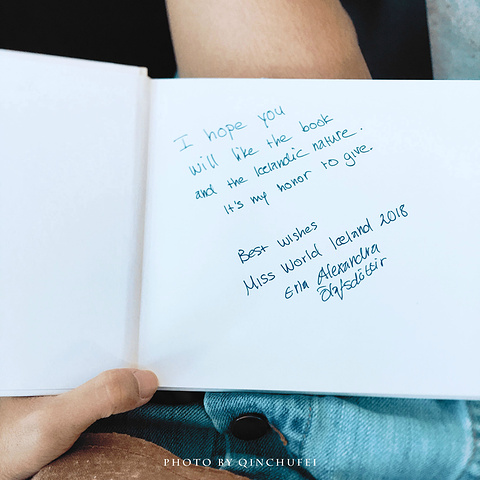 I hope you
will like the book
and the Icelandic nature.
It's my honor to give.
Best wishes
Miss World Iceland 2018
Erla Alexandra
Ólafsdóttir
PHOTO BY QINCHUFEI